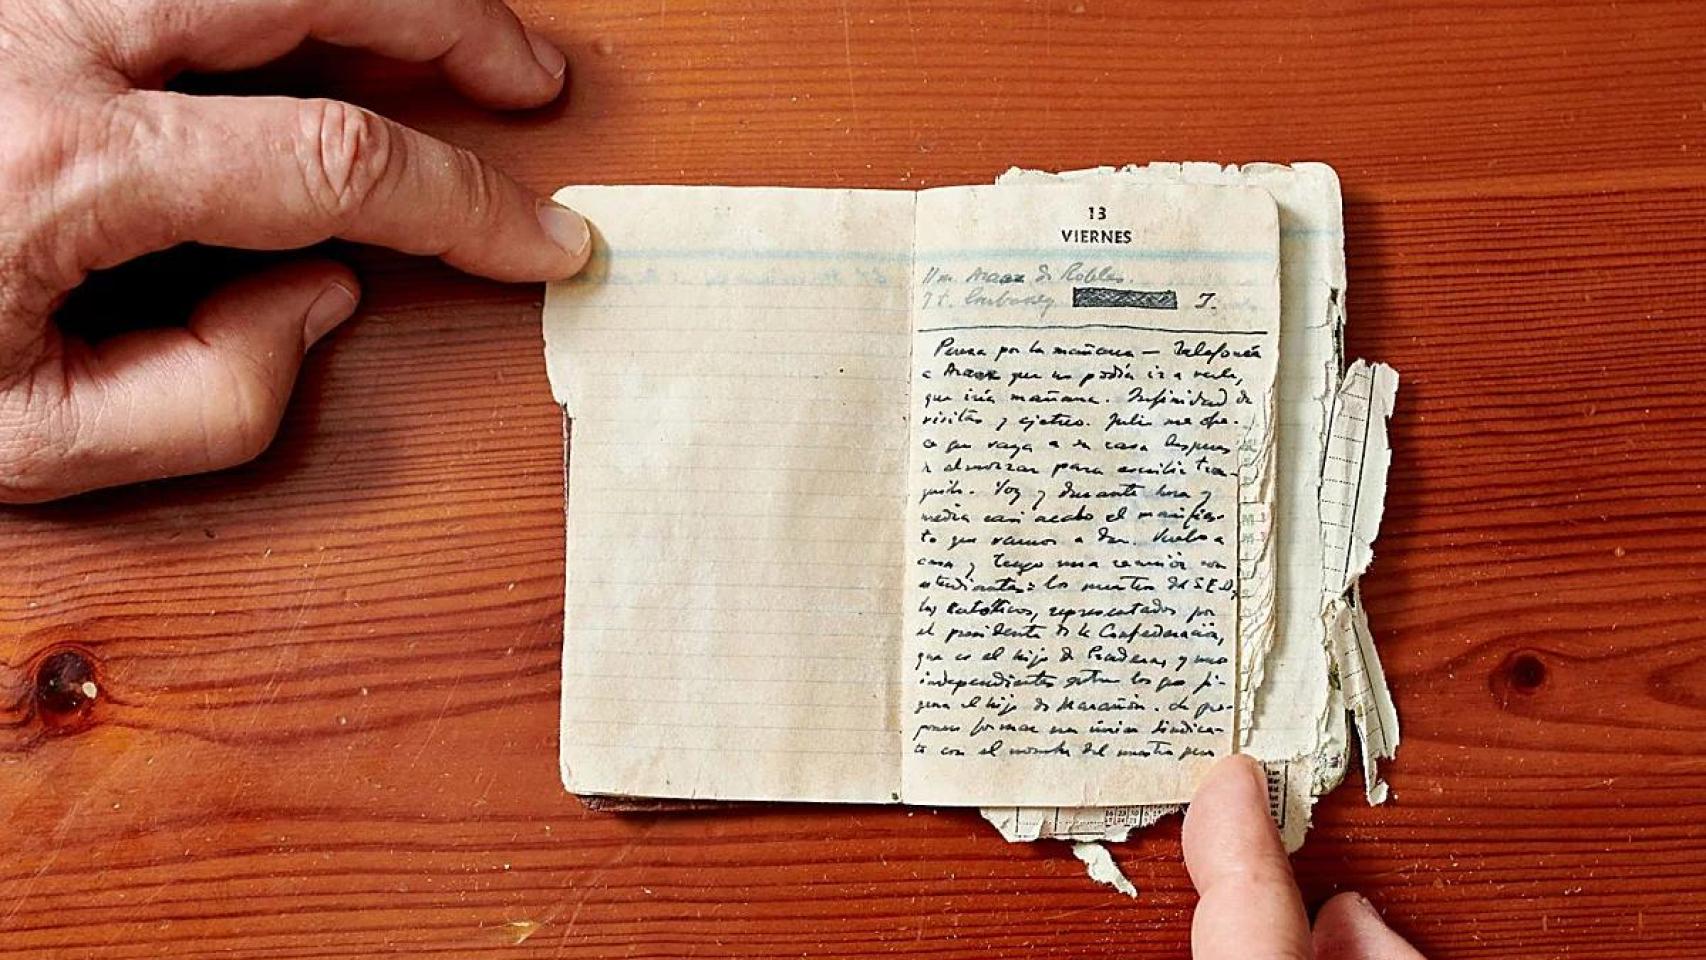 13
VIERNES
Araoz de Robles.
J.
Prensa por la mañana — Telefoneé
a Araoz que no podía ir a verle,
que iría mañana. Infinidad de
visitas y ajetreo. Julio me ofre-
ce que vaya a su casa después
de almorzar para escribir tran-
quilo. Voy y durante hora y
media casi acabo el manifies-
to que vamos a dar. Vuelvo a
casa y tengo una reunión con
estudiantes: los nuestros del S.E.U,
los católicos, representados por
el presidente de la Confederación,
que es el hijo de Pradera, y unos
independientes entre los que fi-
gura el hijo de Marañón. Se pro-
ponen formar un único Sindica-
to con el nombre del nuestro pero